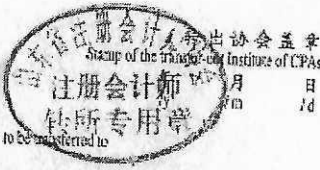 转出协会盖章
Stamp of the transfer-out Institute of CPAs
注册会计师
月 日
/m /d
转所专用章
to be transferred to